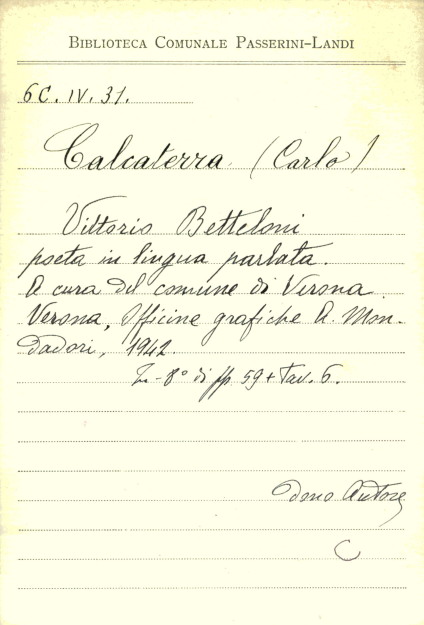 BIBLIOTECA COMUNALE PASSERINI-LANDI
6C. IV. 31.
Calcaterra (Carlo)
Vittorio Betteloni
poeta in lingua parlata.
A cura del comune di Verona.
Verona, Officine grafiche A. Mon-
dadori, 1942.
In-8° di pp. 59 + tav. 6.
dono Autore
C